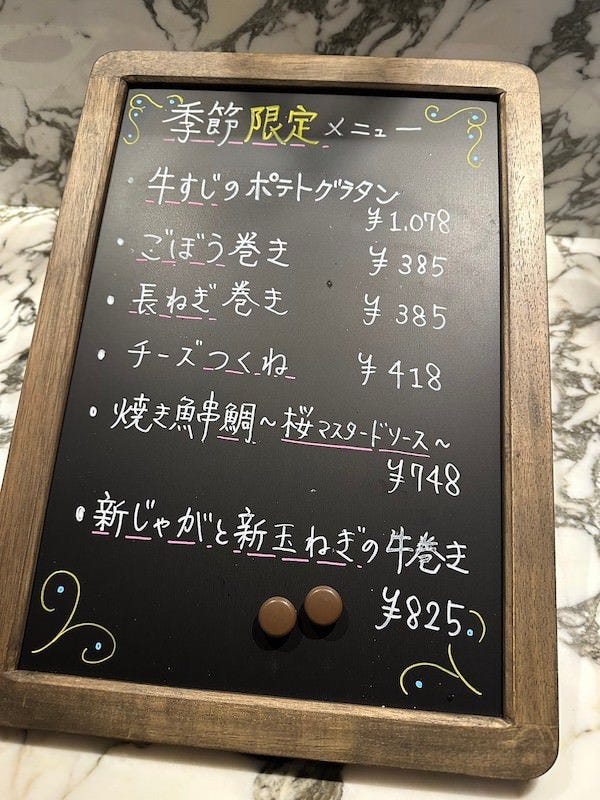 季節限定メニュー
・牛すじのポテトグラタン
¥1.078
・ごぼう巻き ¥385
・長ねぎ巻き ¥385
・チーズつくね ¥418
・焼き魚串鯛～桜マスタードソース～
¥748
・新じゃがと新玉ねぎの牛巻き
¥825